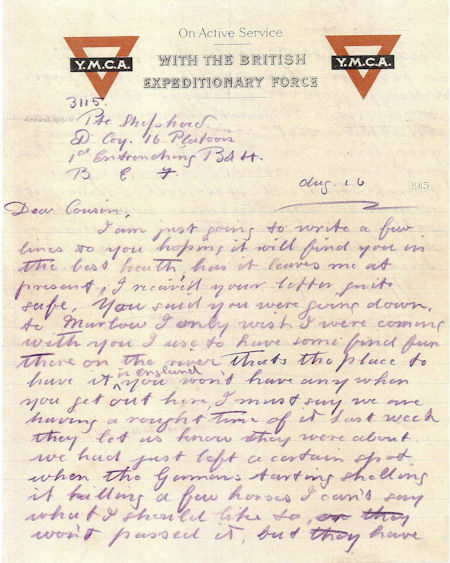 On Active Service
WITH THE BRITISH
EXPEDITIONARY FORCE
Y.M.C.A.
Y.M.C.A.
3115.
Pte Shepherd
D. Coy. 16 Platoon
1st Entrenching Batt.
B E F
Aug. 16 1915
Dear Cousin,
I am just going to write a few
lines to you hoping it will find you in
the best heath, has it leaves me at
present, I receiv'd your letter quite
safe, You said you were going down,
to Marlow I only wish I were coming
with you I use to have some find fun
there on the river thats the place to
have it in England you won't have any when
you get out here, I must say we are
having a rought time of it Last week
they let us know they were about.
we had just left a certain spot
when the Germans starting shelling
it killing a few horses I can't say
what I should like to, or they
won't passed it, but they have